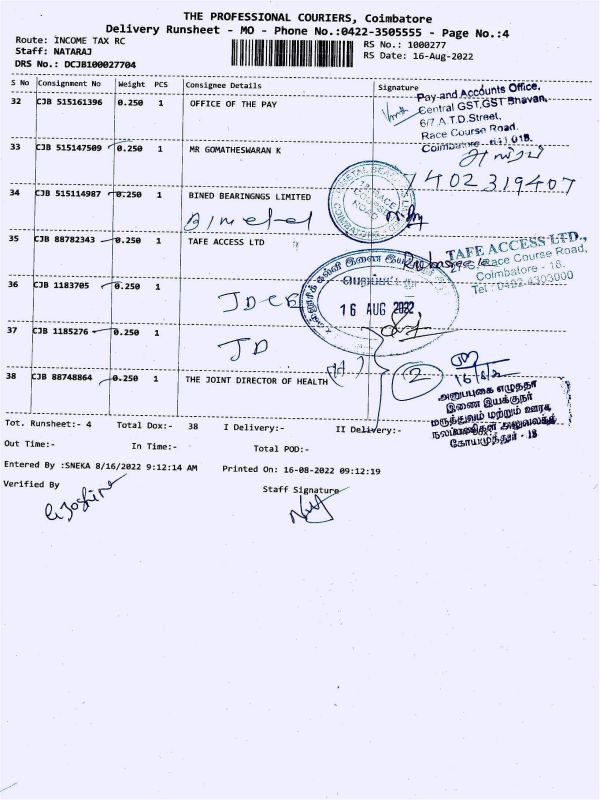 THE PROFESSIONAL COURIERS, Coimbatore
Delivery Runsheet - MO - Phone No.:0422-3505555 - Page No.:4
Route: INCOME TAX RC
Staff: NATARAJ
DRS No.: DCJB100027704
RS No.: 1000277
RS Date: 16-Aug-2022
S No Consignment No Weight PCS Consignee Details Signature
32 CJB 515161396 0.250 1 OFFICE OF THE PAY
Pay and Accounts Office,
Central GST,GST Bhavan,
6/7,A.T.D.Street,
Race Course Road,
Coimbatore - 641 018.
33 CJB 515147509 0.250 1 MR GOMATHESWARAN K
9402319407
34 CJB 515114987 0.250 1 BINED BEARINGNGS LIMITED
Bimetal
35 CJB 88782343 0.250 1 TAFE ACCESS LTD
TAFE ACCESS LTD.,
Race Course Road,
Coimbatore - 18.
Tel : 0422-4303000
36 CJB 1183705 0.250 1
JDCE
16 AUG 2022
37 CJB 1185276 0.250 1
JD
2
16/8/2
38 CJB 88748864 0.250 1 THE JOINT DIRECTOR OF HEALTH
(H)
இணை இயக்குநர்
மருத்துவம் மற்றும் ஊரக
கோயமுத்தூர் - 18
Tot. Runsheet:- 4 Total Dox:- 38 I Delivery:- II Delivery:-
Out Time:- In Time:- Total POD:-
Entered By :SNEKA 8/16/2022 9:12:14 AM Printed On: 16-08-2022 09:12:19
Verified By Staff Signature